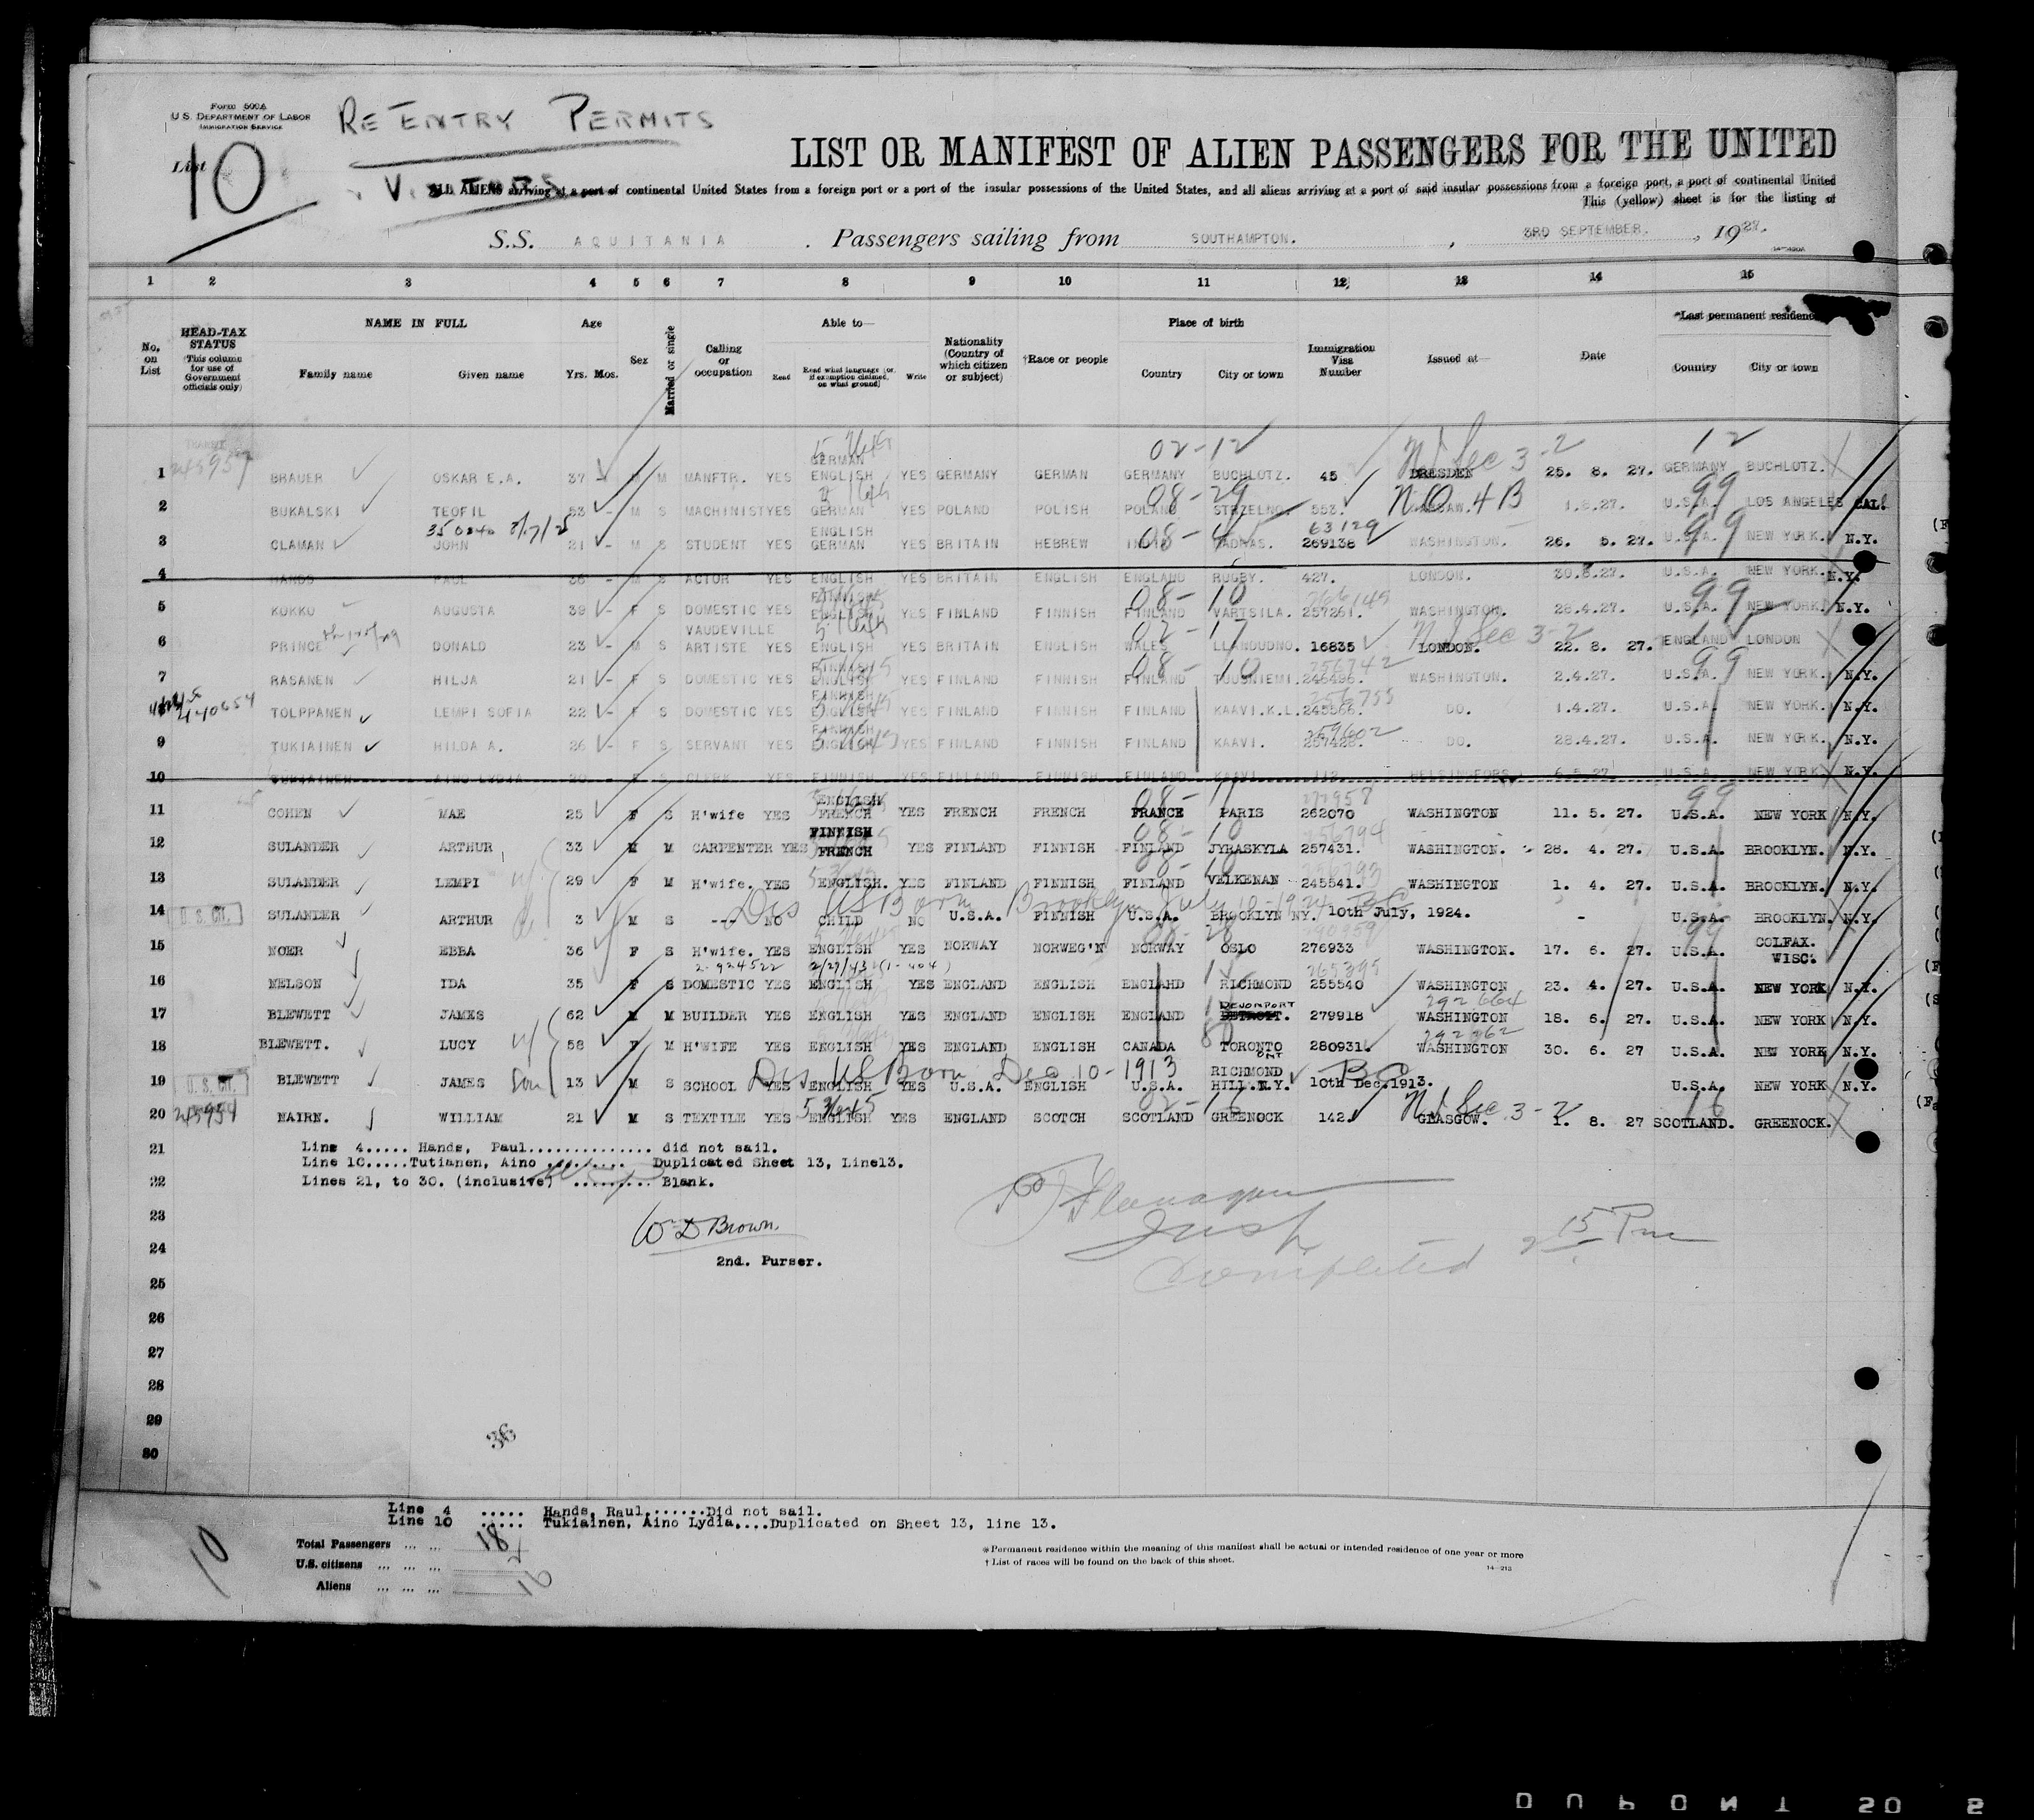 Form 500A
U.S. DEPARTMENT OF LABOR
IMMIGRATION SERVICE
RE ENTRY PERMITS
VISITORS
List 10
LIST OR MANIFEST OF ALIEN PASSENGERS FOR THE UNITED
ALL ALIENS arriving at a port of continental United States from a foreign port or a port of the insular possessions of the United States, and all aliens arriving at a port of said insular possessions from a foreign port, a port of continental United
This (yellow) sheet is for the listing of
S.S. AQUITANIA . Passengers sailing from SOUTHAMPTON. , 3RD SEPTEMBER. , 1927.
1 2 3 4 5 6 7 8 9 10 11 12 13 14 15
No. on List
HEAD-TAX STATUS (This column for use of Government officials only)
NAME IN FULL Family name Given name
Age Yrs. Mos.
Sex
Married or single
Calling or occupation
Able to— Read Read what language (or, if exemption claimed, on what ground) Write
Nationality (Country of which citizen or subject)
†Race or people
Place of birth Country City or town
Immigration Visa Number
Issued at—
Date
*Last permanent residence Country City or town
02-12 12
1 BRAUER OSKAR E.A. 37 M M MANFTR. YES GERMAN ENGLISH YES GERMANY GERMAN GERMANY BUCHLOTZ. 45 DRESDEN 25. 8. 27. GERMANY BUCHLOTZ.
08-29 N.Q. 4B 99
2 BUKALSKI TEOFIL 53 - M S MACHINIST YES GERMAN YES POLAND POLISH POLAND STRZELNO. 553. WARSAW. 1.8.27. U.S.A. LOS ANGELES CAL.
63129 99
3 CLAMAN JOHN 21 - M S STUDENT YES ENGLISH GERMAN YES BRITAIN HEBREW INDIA MADRAS. 269138 WASHINGTON. 26. 5. 27. U.S.A. NEW YORK. N.Y.
4 HANDS PAUL 36 - M S ACTOR YES ENGLISH YES BRITAIN ENGLISH ENGLAND RUGBY. 427. LONDON. 30.8.27. U.S.A. NEW YORK. N.Y.
08-10 99
5 KOKKO AUGUSTA 39 - F S DOMESTIC YES FINNISH ENGLISH YES FINLAND FINNISH FINLAND VARTSILA. 257261. WASHINGTON. 28.4.27. U.S.A. NEW YORK. N.Y.
02-17
6 PRINCE DONALD 23 - M S VAUDEVILLE ARTISTE YES ENGLISH YES BRITAIN ENGLISH WALES LLANDUDNO. 16835 LONDON. 22. 8. 27. ENGLAND LONDON
08-10 256742 99
7 RASANEN HILJA 21 - F S DOMESTIC YES FINNISH ENGLISH YES FINLAND FINNISH FINLAND TUUSNIEMI. 246496. WASHINGTON. 2.4.27. U.S.A. NEW YORK. N.Y.
256755
440654 TOLPPANEN LEMPI SOFIA 22 - F S DOMESTIC YES FINNISH ENGLISH YES FINLAND FINNISH FINLAND KAAVI.K.L. 245566. DO. 1.4.27. U.S.A. NEW YORK. N.Y.
259602
9 TUKIAINEN HILDA A. 26 - F S SERVANT YES FINNISH ENGLISH YES FINLAND FINNISH FINLAND KAAVI. 257428. DO. 28.4.27. U.S.A. NEW YORK. N.Y.
10 TUKIAINEN AINO LYDIA 20 F S CLERK YES FINNISH YES FINLAND FINNISH FINLAND KAAVI 112. HELSINGFORS. 6.5.27. U.S.A. NEW YORK N.Y.
11 COHEN MAE 25 F S H'wife YES ENGLISH FRENCH YES FRENCH FRENCH FRANCE PARIS 262070 WASHINGTON 11. 5. 27. U.S.A. NEW YORK N.Y.
256794
12 SULANDER ARTHUR 33 M M CARPENTER YES FINNISH FRENCH YES FINLAND FINNISH FINLAND JYRASKYLA 257431. WASHINGTON. 28. 4. 27. U.S.A. BROOKLYN. N.Y.
256793
13 SULANDER LEMPI 29 F M H'wife. YES ENGLISH. YES FINLAND FINNISH FINLAND VELKENAN 245541. WASHINGTON 1. 4. 27. U.S.A. BROOKLYN. N.Y.
Dis US Born Brooklyn July 10-1924 BC
14 U.S. CIT. SULANDER ARTHUR 3 M S --- NO CHILD NO U.S.A. FINNISH U.S.A. BROOKLYN NY. 10th July, 1924. - U.S.A. BROOKLYN. N.Y.
15 NOER EBBA 36 F S H'wife. YES ENGLISH YES NORWAY NORWEG'N NORWAY OSLO 276933 WASHINGTON. 17. 6. 27. U.S.A. COLFAX. WISC.
2-924522 2/27/43 (1-404) 265395
16 NELSON IDA 35 F S DOMESTIC YES ENGLISH YES ENGLAND ENGLISH ENGLAND RICHMOND 255540 WASHINGTON 23. 4. 27. U.S.A. NEW YORK N.Y.
292664
17 BLEWETT JAMES 62 M M BUILDER YES ENGLISH YES ENGLAND ENGLISH ENGLAND DEVONPORT DETROIT. 279918 WASHINGTON 18. 6. 27. U.S.A. NEW YORK N.Y.
18 BLEWETT. LUCY 58 F M H'WIFE YES ENGLISH YES ENGLAND ENGLISH CANADA TORONTO ONT 280931. WASHINGTON 30. 6. 27 U.S.A. NEW YORK N.Y.
Dis US Born Dec 10-1913 BC
19 U.S. CIT. BLEWETT JAMES Son 13 M S SCHOOL YES ENGLISH YES U.S.A. ENGLISH U.S.A. RICHMOND HILL.N.Y. 10th Dec.1913. U.S.A. NEW YORK N.Y.
20 NAIRN. WILLIAM 21 M S TEXTILE YES ENGLISH YES ENGLAND SCOTCH SCOTLAND GREENOCK 142. GLASGOW. 1. 8. 27 SCOTLAND. GREENOCK.
21 Line 4..... Hands, Paul.............. did not sail.
Line 10.....Tutianen, Aino ......... Duplicated Sheet 13, Line13.
22 Lines 21, to 30. (inclusive) ......... Blank.
23 W D Brown.
24 2nd. Purser.
Flanagan
Insp
Completed 2 15 Pm
25
26
27
28
29
30
36
Line 4 ..... Hands, Raul.......Did not sail.
Line 10 ..... Tukiainen, Aino Lydia....Duplicated on Sheet 13, line 13.
10
Total Passengers ... ... 18
U.S. citizens ... ... ... 2
Aliens ... ... ... 16
*Permanent residence within the meaning of this manifest shall be actual or intended residence of one year or more
† List of races will be found on the back of this sheet.
14—213
DUPONT 20